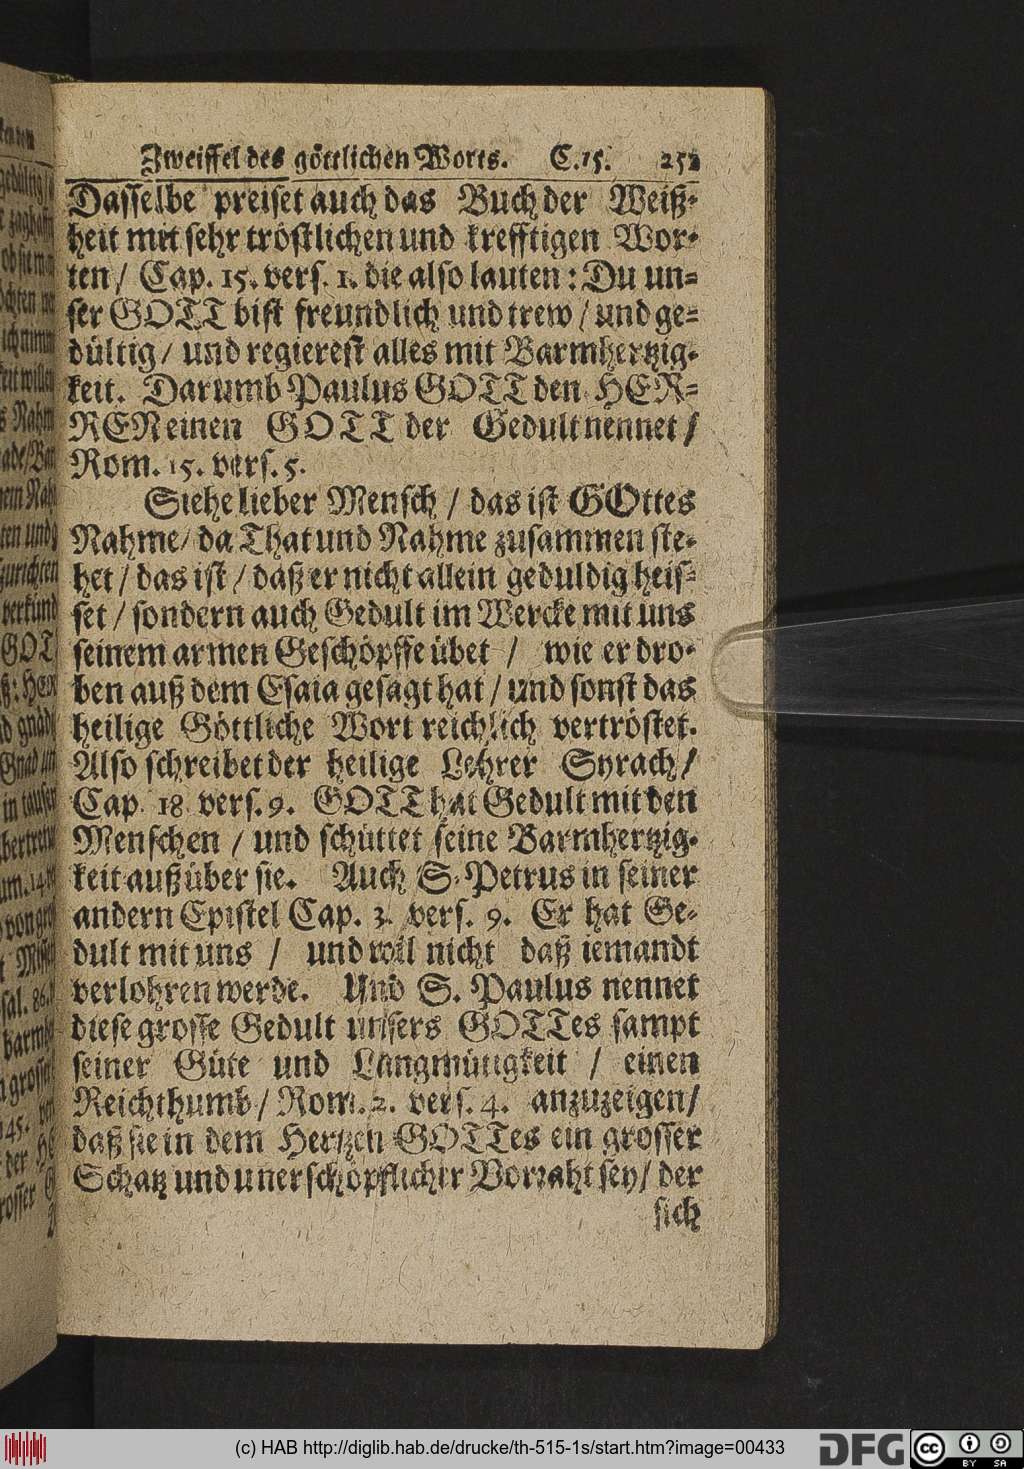 Zweiffel des göttlichen Worts. C.15. 252
Dasselbe preiset auch das Buch der Weiß-
heit mit sehr tröstlichen und krefftigen Wor-
ten / Cap. 15. vers. 1. die also lauten: Du un-
ser GOTT bist freundlich und trew / und ge-
dültig / und regierest alles mit Barmhertzig-
keit. Darumb Paulus GOTT den HER-
REN einen GOTT der Gedult nennet /
Rom. 15. vers. 5.
Siehe lieber Mensch / das ist GOttes
Nahme / da That und Nahme zusammen ste-
het / das ist / daß er nicht allein geduldig heis-
set / sondern auch Gedult im Wercke mit uns
seinem armen Geschöpffe übet / wie er dro-
ben auß dem Esaia gesagt hat / und sonst das
heilige Göttliche Wort reichlich vertröstet.
Also schreibet der heilige Lehrer Syrach /
Cap 18 vers. 9. GOTT hat Gedult mit den
Menschen / und schüttet seine Barmhertzig-
keit auß über sie. Auch S. Petrus in seiner
andern Epistel Cap. 3. vers. 9. Er hat Ge-
dult mit uns / und wil nicht daß iemandt
verlohren werde. Und S. Paulus nennet
diese grosse Gedult unsers GOTTes sampt
seiner Güte und Langmütigkeit / einen
Reichthumb / Rom. 2. vers. 4. anzuzeigen /
daß sie in dem Hertzen GOTTes ein grosser
Schatz und unerschöpflicher Vorraht sey / der
sich
(c) HAB http://diglib.hab.de/drucke/th-515-1s/start.htm?image=00433
DFG
cc BY SA